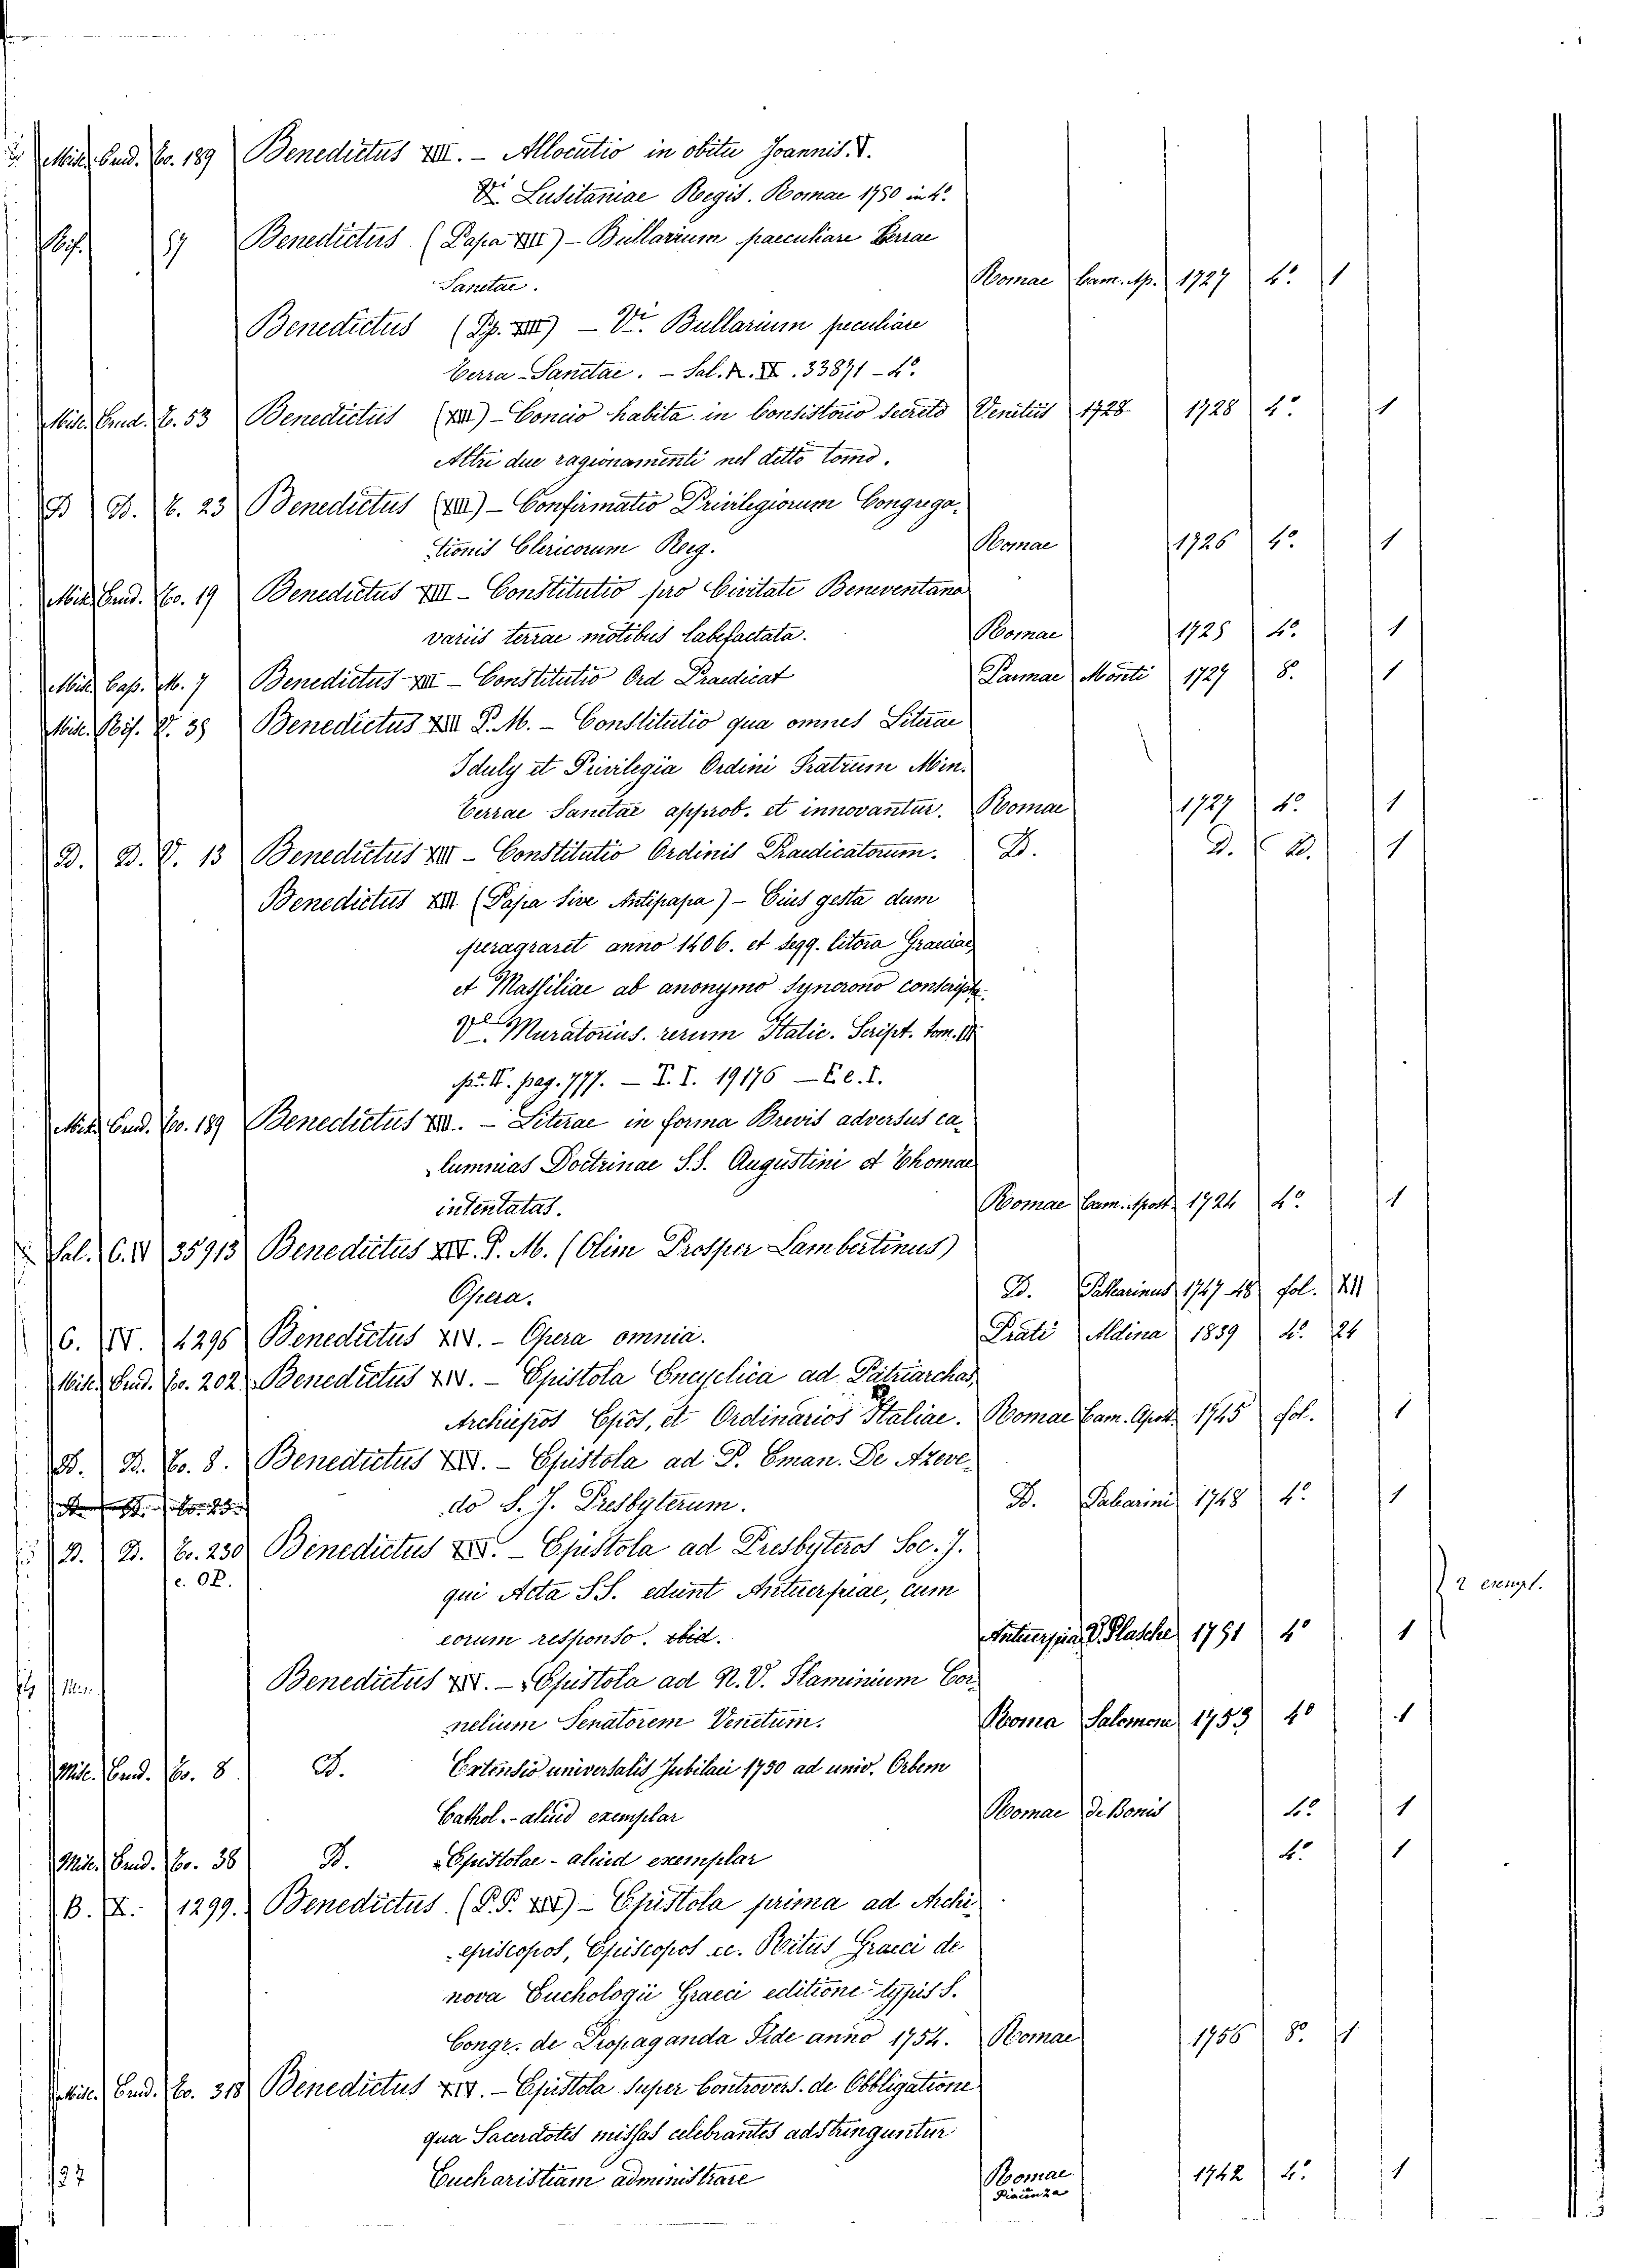 Misc. Erud. To. 189 Benedictus XIII. - Allocutio in obitu Joannis. V.
Lusitaniae Regis. Romae 1750 in 4.°
57 Benedictus (Papa XIII) - Bullarium paeculiare Terrae
Sanctae. Romae Cam. Ap. 1727 4.° 1
Benedictus (Pp. XIII) - V. Bullarium peculiare
Terra-Sanctae. - Sal. 33871 - 4.°
Misc. Erud. T. 53 Benedictus (XIII) - Concio habita in Consistorio Secreto Venitiis 1728 1728 4.° 1
Altri due ragionamenti nel ditto tomo.
D D. T. 23 Benedictus (XIII) - Confirmatio Privilegiorum Congrega-
tionis Clericorum Reg. Romae 1726 4.° 1
Misc. Erud. To. 19 Benedictus XIII - Constitutio pro Civitate Beneventana
variis terrae motibus labefactata. Romae 1725 4.° 1
Misc. Cap. M. 7 Benedictus XIII - Constitutio Ord Praedicat Parmae Monti 1729 8. 1
Misc. 35 Benedictus XIII P. M. - Constitutio qua omnes Literae
et Privilegia Ordini Fratrum Min.
Terrae Sanctae approb. et innovantur. Romae 1727 4.° 1
D. D. V. 13 Benedictus XIII - Constitutio Ordinis Praedicatorum. D. D. D. 1
Benedictus XIII. (Papa sive Antipapa) - Eius gesta dum
peragraret anno 1406. et segg. litora Graeciae,
et Massiliae ab anonymo Syncrono conscripta.
V. Muratorius. rerum Italic. Script. tom. III
II. pag. 777. - T. I. 19176 - E. e. I.
Misc. Erud. To. 189 Benedictus XIII. - Literae in forma Brevis adversus ca-
lumnias Doctrinae S.S. Augustini et Thomae
intentatas. Romae Cam. Apost. 1724 4.° 1
Sal. C. IV 35913 Benedictus XIV. P. M. (Olim Prosper Lambertinus)
Opera. D. Palearinus 1747-48 fol. XII
C. IV. 4296 Benedictus XIV. - Opera omnia. Prati Aldina 1839 4.° 24
Misc. Erud. To. 202 Benedictus XIV. - Epistola Encyclica ad Patriarchas,
Archiepos Epos, et Ordinarios Italiae. Romae Cam. Apost. 1745 fol. 1
D. D. To. 8. Benedictus XIV. - Epistola ad P. Eman. De Azeve-
do S. J. Presbyterum. D. Palearini 1748 4.° 1
D. D. To. 230 Benedictus XIV. - Epistola ad Presbyteros Soc. J.
c. OP.
qui Acta SS. edunt Antuerpiae, cum 2 exempl.
eorum responso. ibid. Antuerpiae V. Plasche 1751 4.° 1
Benedictus XIV. - Epistola ad N. V. Flaminium Cor-
nelium Senatorem Venetum. Roma Salomoni 1753 4.° 1
Misc. Erud. To. 8 D. Extensio universalis Jubilaei 1750 ad univ. Orbem
Cathol. - aliud exemplar Romae De Bonis 4.° 1
Misc. Erud. To. 38 D. Epistolae - aliud exemplar 4.° 1
B. X. 1299. Benedictus. (P.P. XIV) - Epistola prima ad Archi-
episcopos, Episcopos ec. Ritus Graeci de
nova Euchologii Graeci editione typis S.
Congr. de Propaganda Fide anno 1754. Romae 1756 8.° 1
Misc. Erud. To. 318 Benedictus XIV. - Epistola super Controvers. de Obbligatione
qua Sacerdotes missas celebrantes adstringuntur
Eucharistiam administrare Romae 1742 4.° 1
Piacenza